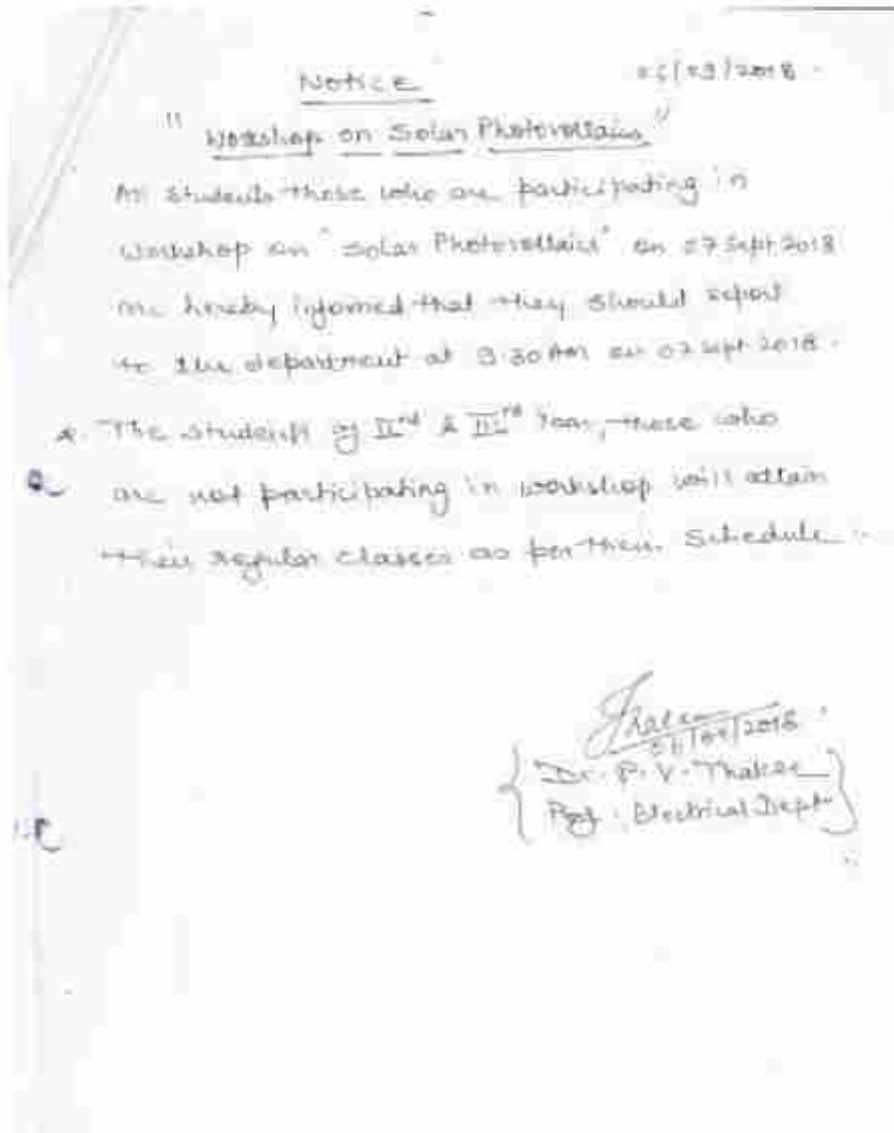 Notice
06/09/2018
"Workshop on Solar Photovoltaics"
All students those who are participating in
workshop on "Solar Photovoltaics" on 07 Sept 2018
are hereby informed that they should report
to the department at 9:30 AM on 07 Sept 2018.
The students of IInd & IIIrd Year, those who
are not participating in workshop will attain
their regular classes as per their Schedule
06/09/2018
Dr. P. V. Thakre
Prof. Electrical Dept